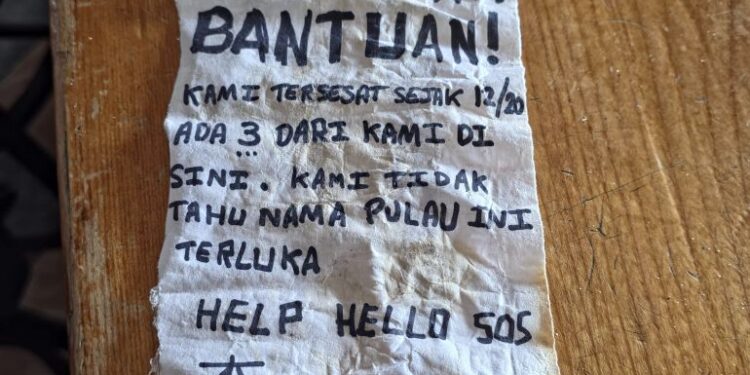 BANTUAN!
KAMI TERSESAT SEJAK 12/20
ADA 3 DARI KAMI DI
SINI. KAMI TIDAK
TAHU NAMA PULAU INI
TERLUKA
HELP HELLO SOS